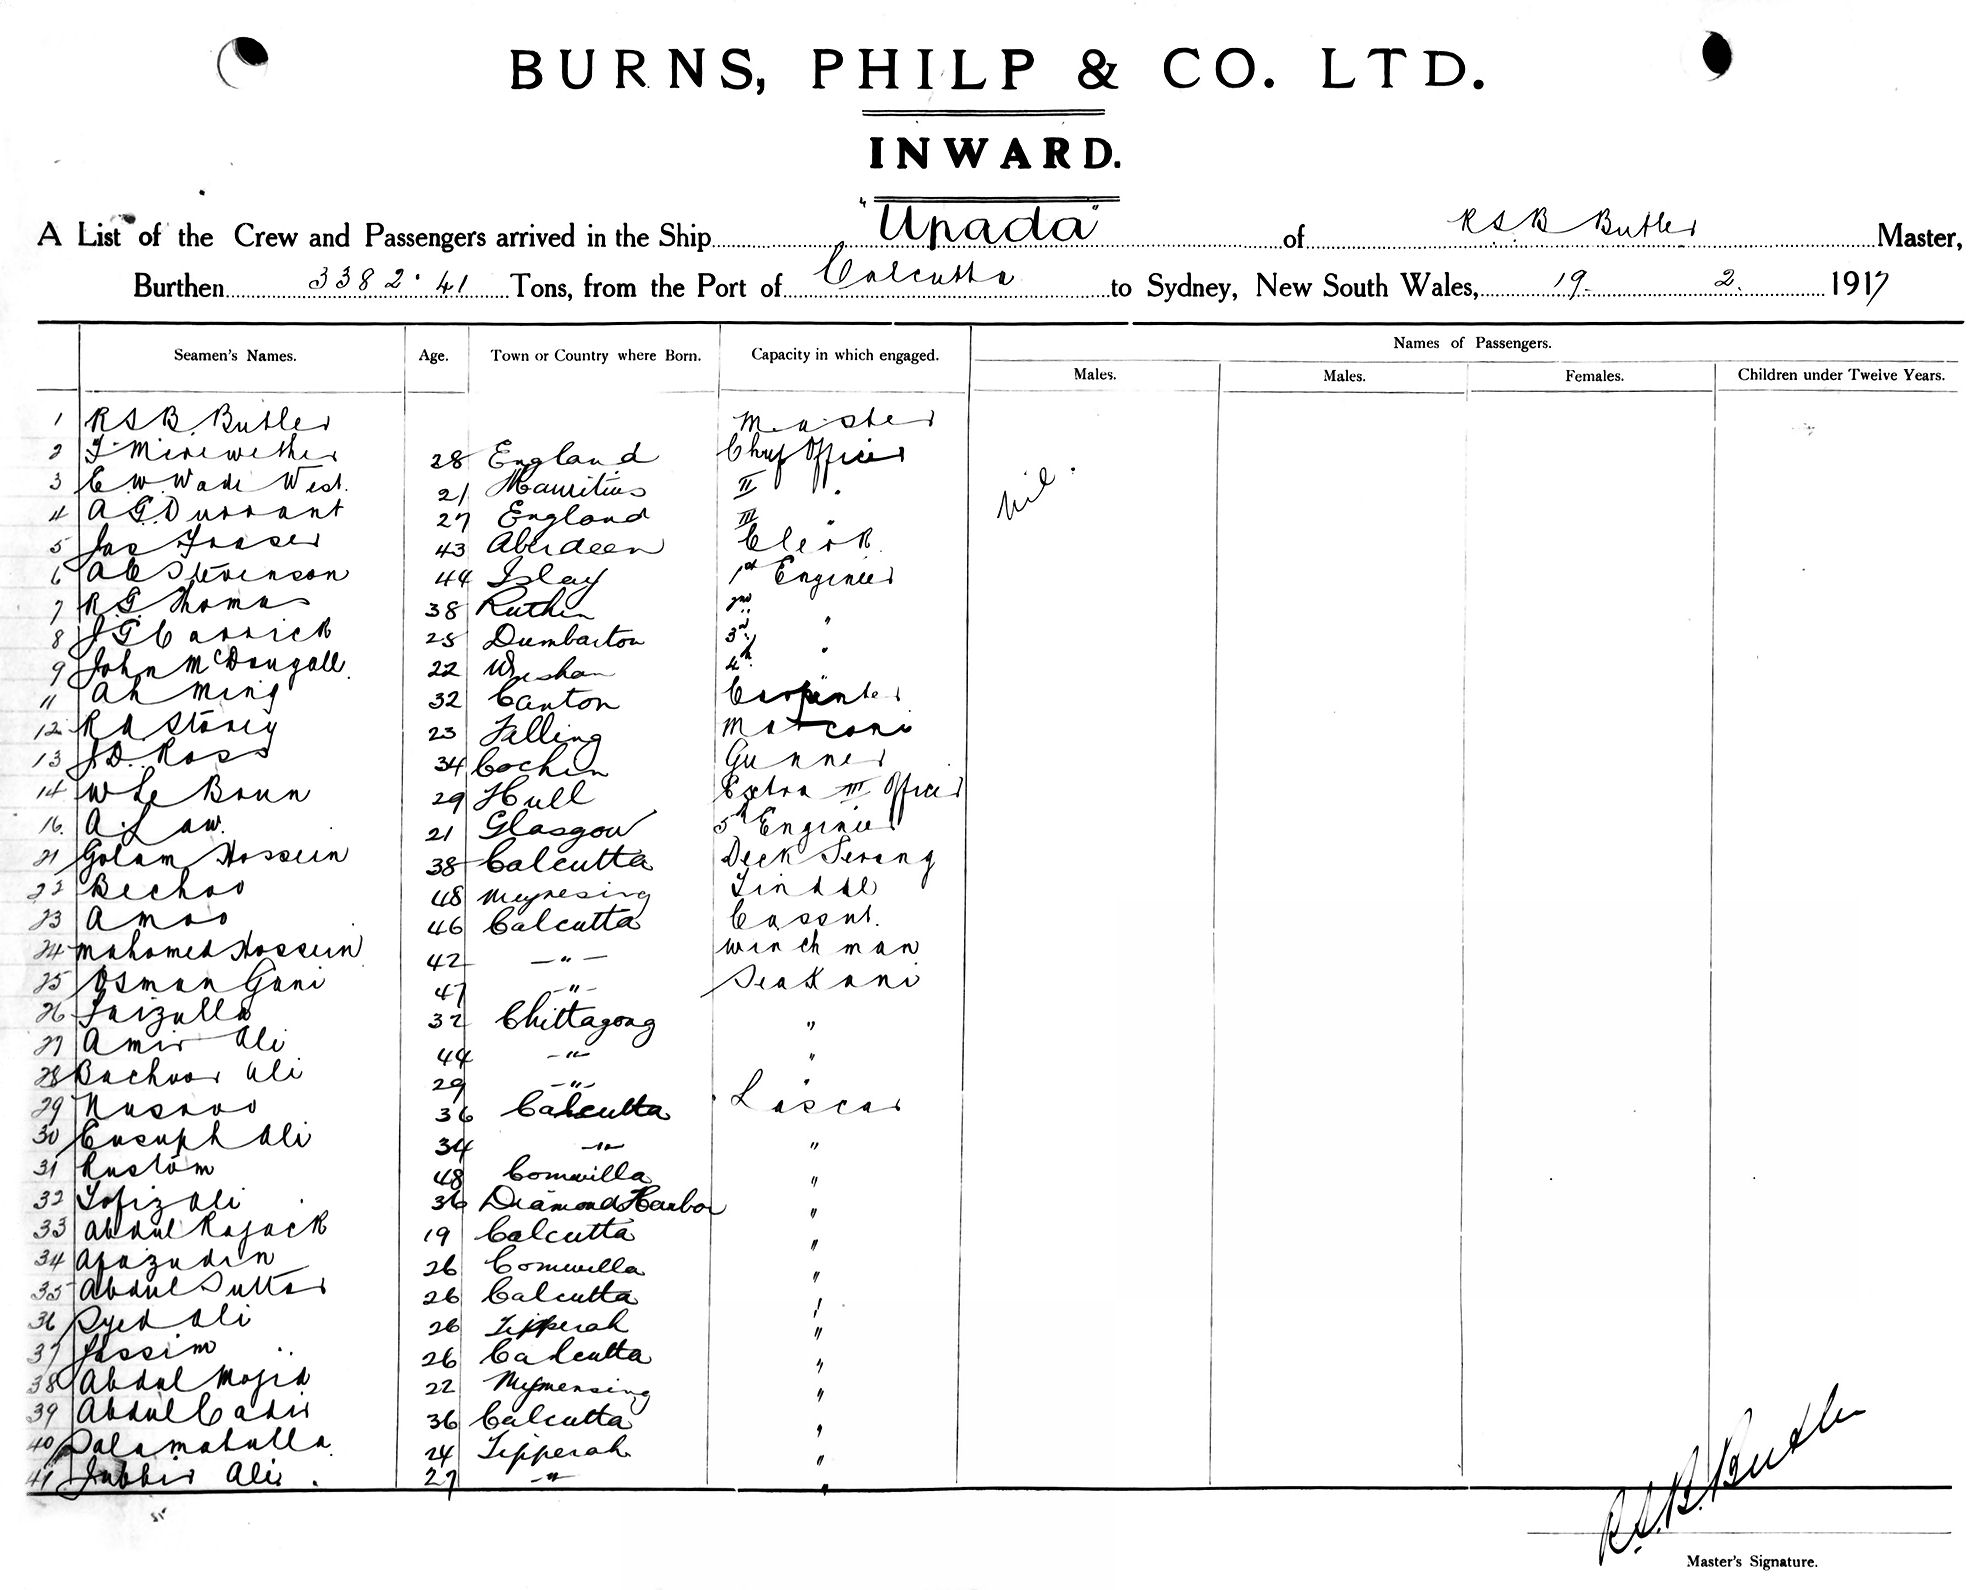 BURNS, PHILP & CO. LTD.
INWARD.
A List of the Crew and Passengers arrived in the Ship "Upada" of R S. B Butler Master,
Burthen 3382·41 Tons, from the Port of Calcutta to Sydney, New South Wales, 19. 2. 1917
Seamen's Names. Age. Town or Country where Born. Capacity in which engaged. Names of Passengers.
Males. Males. Females. Children under Twelve Years.
1 R S B. Butler Master
2 F Mirewether 28 England Chief Officer
3 C. W. Wade West. 21 Mauritius II "
Nil.
4 A G. Durrant 27 England III "
5 Jas Fraser 43 Aberdeen Clerk
6 A C Stevenson 44 Islay 1st Engineer
7 R. G Thomas 38 Ruthin 2nd "
8 J G Carrick 25 Dumbarton 3rd "
9 John McDougall 22 Wishaw 4th "
11 Ah Ming 32 Canton Carpenter
12 R A Storey 23 Felling Marconi
13 J D. Ross 34 Cochin Gunner
14 W Le Brun 29 Hull Extra III Officer
16. A. Law. 21 Glasgow 5th Engineer
21 Golam Hossein 38 Calcutta Deck Serang
22 Bechoo 48 Tindal
23 Amoo 46 Calcutta Cassab.
24 Mahomed Hossein 42 —"— Winch man
25 Osman Gani 47 -"- Seakani
26 Faizulla 32 Chittagong "
27 Amir Ali 44 -"- "
28 Ali 29 -"- "
29 36 Calcutta Lascar
30 Eusuph Ali 34 -"- "
31 Rustom 48 Comwilla "
32 Tofiz Ali 36 Diamond Harbor "
33 Abdul Rajack 19 Calcutta "
34 Afazudin 26 Comwilla "
35 Abdul Suttar 26 Calcutta "
36 Syed Ali 26 Tipperah "
37 Jassim 26 Calcutta "
38 Abdul Mojid 22 Mymensing "
39 Abdul Cadir 36 Calcutta "
40 Salamatulla 24 Tipperah "
41 Jubbir Ali. 27 -"- "
R. S. B. Butler
Master's Signature.